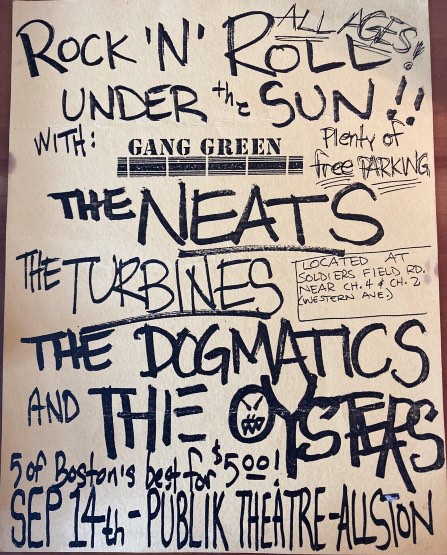 ALL AGES!
ROCK 'N' ROLL
UNDER the SUN!!
WITH:
GANG GREEN
Plenty of
free PARKING
THE NEATS
THE TURBINES
LOCATED AT
SOLDIERS FIELD RD.
NEAR CH. 4 & CH. 2
(WESTERN AVE.)
THE DOGMATICS
AND THE OYSTERS
5 of Boston's best for $5.00!
SEP 14th - PUBLIK THEATRE - ALLSTON